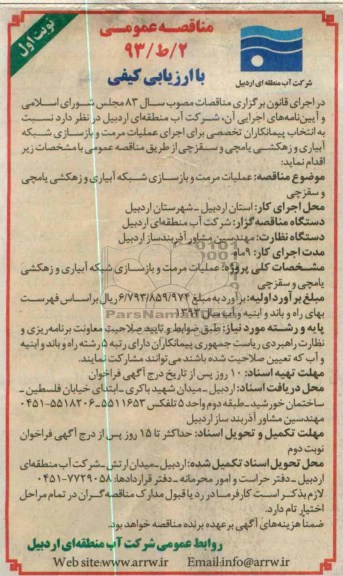 نوبت اول
مناقصه عمومی
۹۳/ط/۲
با ارزیابی کیفی
شرکت آب منطقه ای اردبیل
در اجرای قانون برگزاری مناقصات مصوب سال ۸۳ مجلس شورای اسلامی
و آیین‌نامه‌های اجرایی آن، شرکت آب منطقه‌ای اردبیل در نظر دارد نسبت
به انتخاب پیمانکاران تخصصی برای اجرای عملیات مرمت و بازسازی شبکه
آبیاری و زهکشی یامچی و سقزچی از طریق مناقصه عمومی با مشخصات زیر
اقدام نماید:
موضوع مناقصه: عملیات مرمت و بازسازی شبکه آبیاری و زهکشی یامچی
و سقزچی
محل اجرای کار: استان اردبیل ـ شهرستان اردبیل
دستگاه مناقصه‌گزار: شرکت آب منطقه‌ای اردبیل
دستگاه نظارت: مهندسین مشاور آذربندساز اردبیل
مدت اجرای کار: ۹ ماه
مشخصات کلی پروژه: عملیات مرمت و بازسازی شبکه آبیاری و زهکشی
یامچی و سقزچی
مبلغ برآورد اولیه: برآورد به مبلغ ۶/۷۹۳/۸۵۹/۹۷۴ ریال براساس فهرست
بهای راه و باند و ابنیه و آب سال ۱۳۹۳
پایه و رشته مورد نیاز: طبق ضوابط و تایید صلاحیت معاونت برنامه‌ریزی و
نظارت راهبردی ریاست جمهوری پیمانکاران دارای رتبه ۵ رشته راه و باند و ابنیه
و آب که تعیین صلاحیت شده باشند می‌توانند مشارکت نمایند.
مهلت تهیه اسناد: ۱۰ روز پس از تاریخ درج آگهی فراخوان
محل دریافت اسناد: اردبیل ـ میدان شهید باکری ـ ابتدای خیابان فلسطین ـ
ساختمان خورشید ـ طبقه دوم واحد ۵ تلفکس ۵۵۱۱۶۵۳ ـ ۵۵۱۸۲۰۶ ـ ۰۴۵۱
مهندسین مشاور آذربند ساز اردبیل
مهلت تکمیل و تحویل اسناد: حداکثر تا ۱۵ روز پس از درج آگهی فراخوان
نوبت دوم
محل تحویل اسناد تکمیل شده: اردبیل ـ میدان ارتش ـ شرکت آب منطقه‌ای
اردبیل ـ دفتر حراست و امور محرمانه ـ دفتر قراردادها: ۷۷۲۹۰۵۸ ـ ۰۴۵۱
لازم بذکر است کارفرما در رد یا قبول مدارک مناقصه‌گران در تمام مراحل
اختیار تام دارد.
ضمنا هزینه‌های آگهی بر عهده برنده مناقصه خواهد بود.
روابط عمومی شرکت آب منطقه‌ای اردبیل
Web site:www.arrw.ir Email:info@arrw.ir